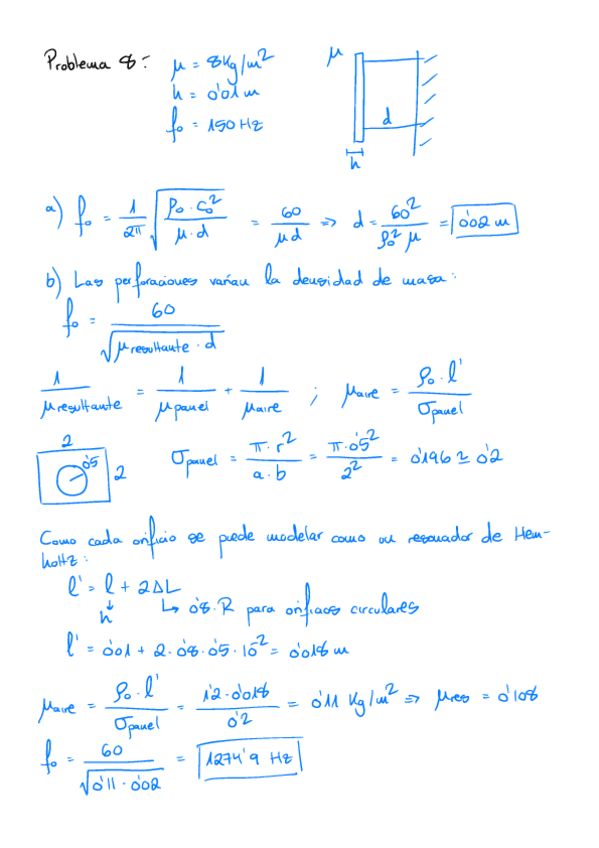 Problema 8: μ = 8Kg/m²
h = 0'01 m
f₀ = 150 Hz
μ
d
h
a) f₀ = 1/2π √(ρ₀·c₀²/μ·d) = 60/μd ⇒ d = 60²/ρ₀² μ = 0'02 m
b) Las perforaciones varían la densidad de masa:
f₀ = 60/√(μresultante · d)
1/μresultante = 1/μpanel + 1/μaire ; μaire = ρ₀·l'/σpanel
2
0'5
2
σpanel = π·r²/a·b = π·0'5²/2² = 0'196 ≃ 0'2
Como cada orificio se puede modelar como un resonador de Hem-
holtz:
l' = l + 2ΔL
h ↳ 0'8·R para orificios circulares
l' = 0'01 + 2·0'8·0'5·10⁻² = 0'018 m
μaire = ρ₀·l'/σpanel = 1'2·0'018/0'2 = 0'11 Kg/m² ⇒ μres = 0'108
f₀ = 60/√(0'11·0'02) = 1274'9 Hz